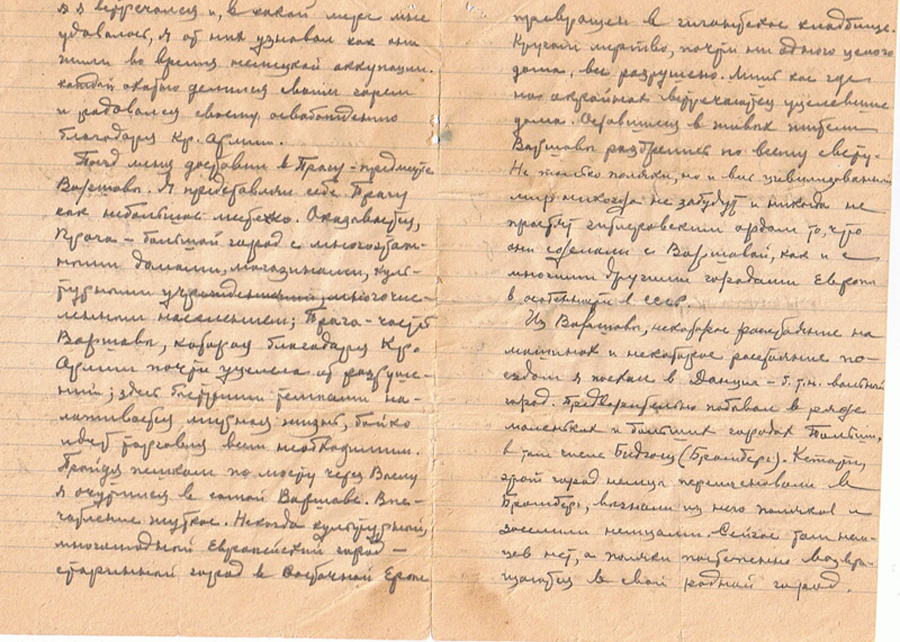 я встречался и, в какой мере мне
удавалось, я от них узнавал как они
жили во время немецкой аккупации.
каждый охотно делился своим горем
и радовался своему освобождению
благодаря Кр. Армии.
Поезд меня доставил в Прагу - предместье
Варшавы. Я представлял себе Прагу
как небольшое местечко. Оказывается,
Прага - большой город с многоэтаж-
ными домами, магазинами, куль-
турными учреждениями и многочис-
ленным населением; Прага - часть
Варшавы, которая благодаря Кр.
Армии почти уцелела от разруше-
ний; здесь быстрыми темпами на-
лаживается мирная жизнь, бойко
идет торговля всем необходимым.
Пройдя пешком по мосту через Вислу
я очутился в самой Варшаве. Впе-
чатление жуткое. Некогда культурный,
многолюдный Европейский город -
старинный город в Восточной Европе
превращен в гигантское кладбище.
Кругом мертво, почти ни одного целого
дома, все разрушено. Лишь кое где
на окраинах встречаются уцелевшие
дома. Оставшиеся в живых жители
Варшавы разбрелись по всему свету.
Не только поляки, но и весь цивилизованный
мир никогда не забудут и никогда не
простят гитлеровским ордам то, что
они сделали с Варшавой, как и с
многими другими городами Европы
в особенности в СССР.
Из Варшавы, некоторое расстояние на
машинах и некоторое расстояние по-
ездом я поехал в Данциг - б. т.н. вольный
город. Предварительно побывал в ряде
маленьких и больших городах Польши,
в том числе Бидгощ (Бромберг). Кстати,
этот город немцы переименовали в
Бромберг, выгнали из него поляков и
заселили немцами. Сейчас там нем-
цев нет, а поляки постепенно возвра-
щаются в свой родной город.